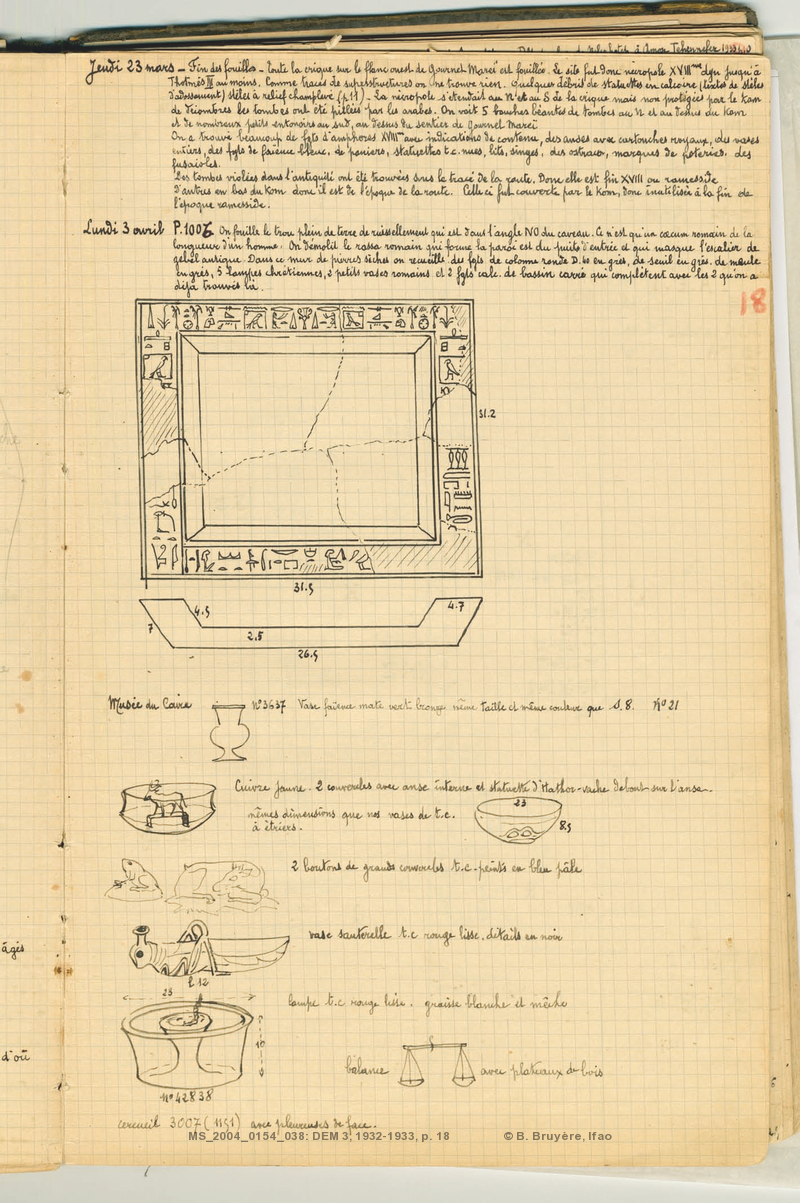 à Amon
Jeudi 23 mars – Fin des fouilles – Toute la crique sur le flanc ouest de Gournet Mareï est fouillée. Le site fut donc nécropole XVIIIme dyn jusqu'à
Thotmès III au moins. Comme traces de superstructures on ne trouve rien. Quelques débris de statuettes en calcaire (textes de stèles
d'adossement) stèles à relief champlevé (p. 11) – La nécropole s'étendait au N et au S de la crique mais non protégées par le Kom
de décombres les tombes ont été pillées par les arabes. On voit 5 bouches béantes de tombes au N et au dessus du Kom
et de nombreux petits entonnoirs au sud, au dessus du sentier de Gournet Mareï
On a trouvé beaucoup de fgts d'amphores XVIIIme avec indications de contenu, des anses avec cartouches royaux, des vases
entiers, des fgts de faïence bleue, de paniers, statuettes t.c. nues, lits, singes, des ostraca, marques de poteries. des
fusaioles.
Des tombes violées dans l'antiquité ont été trouvées sous le tracé de la route. Donc elle est fin XVIII ou ramesside
d'autres en bas du Kom donc il est de l'époque de la route. Celle ci fut couverte par le Kom, donc inutilisée à la fin de
l'époque ramesside.
Lundi 3 avril P.1006 On fouille le trou plein de terre de ruissellement qui est dans l'angle NO du caveau. Ce n'est qu'un cæcum romain de la
longueur d'un homme. On démolit le rassa romain qui forme la paroi est du puits d'entrée et qui masque l'escalier de
gebel antique. Dans ce mur de pierres sèches on recueille des fgts de colonne ronde D.40 en grès, de seuil en grès, de meule
en grès, 5 lampes chrétiennes, 2 petits vases romains et 2 fgts calc. de bassin carré qui complètent avec les 2 qu'on a
déjà trouvés là.
18
31.2
31.5
4.5
4.7
7
2.5
26.5
Musée du Caire
n° 3637 Vase faïence mate vert bronze même taille et même couleur que S. 8. K° 21
Cuivre jaune. 2 couvercles avec anse interne et statuette d'Hathor-vache debout sur l'anse.
mêmes dimensions que nos vases de t.c.
à étriers.
23
8.5
2 boutons de grands couvercles t.c. peints en bleu pâle
vase sauterelle t.c rouge lisse. détails en noir
L 12
23
lampe t.c rouge lisse. graisse blanche et mèche
n° 42838
balance
avec plateaux de bois
cercueil 3007 (1151) avec pleureuses de face.
âgés
d'où
MS_2004_0154_038: DEM 3, 1932-1933, p. 18
© B. Bruyère, Ifao